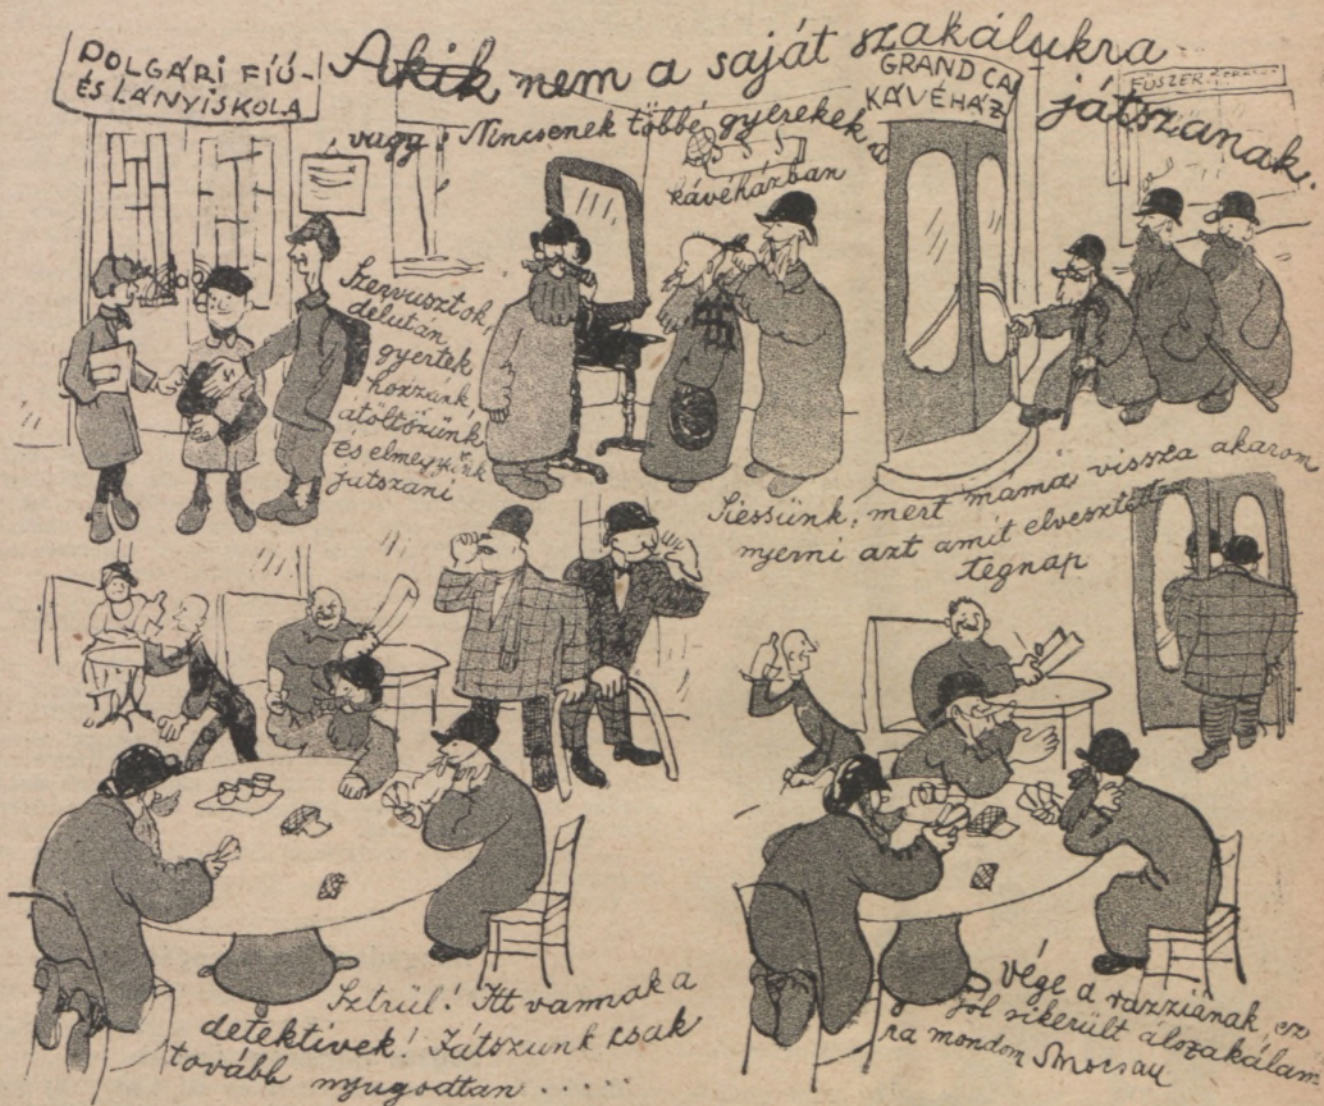 POLGÁRI FIÚ-
ÉS LÁNYISKOLA
Akik nem a saját szakálukra
játszanak.
vagy: Nincsenek többé gyerekek a
kávéházban
GRAND CA
KÁVÉHÁZ
FÜSZER
Szervusztok,
délután
gyertek
hozzánk,
átöltözünk
és elmegyünk
játszani
Siessünk, mert máma vissza akarom
nyerni azt amit elvesztettem
tegnap
Sztrül! Itt vannak a
detektívek! Játszunk csak
tovább nyugodtan.....
Vége a razziának, ez
jól sikerült álszakálam-
ra mondom Smorsau